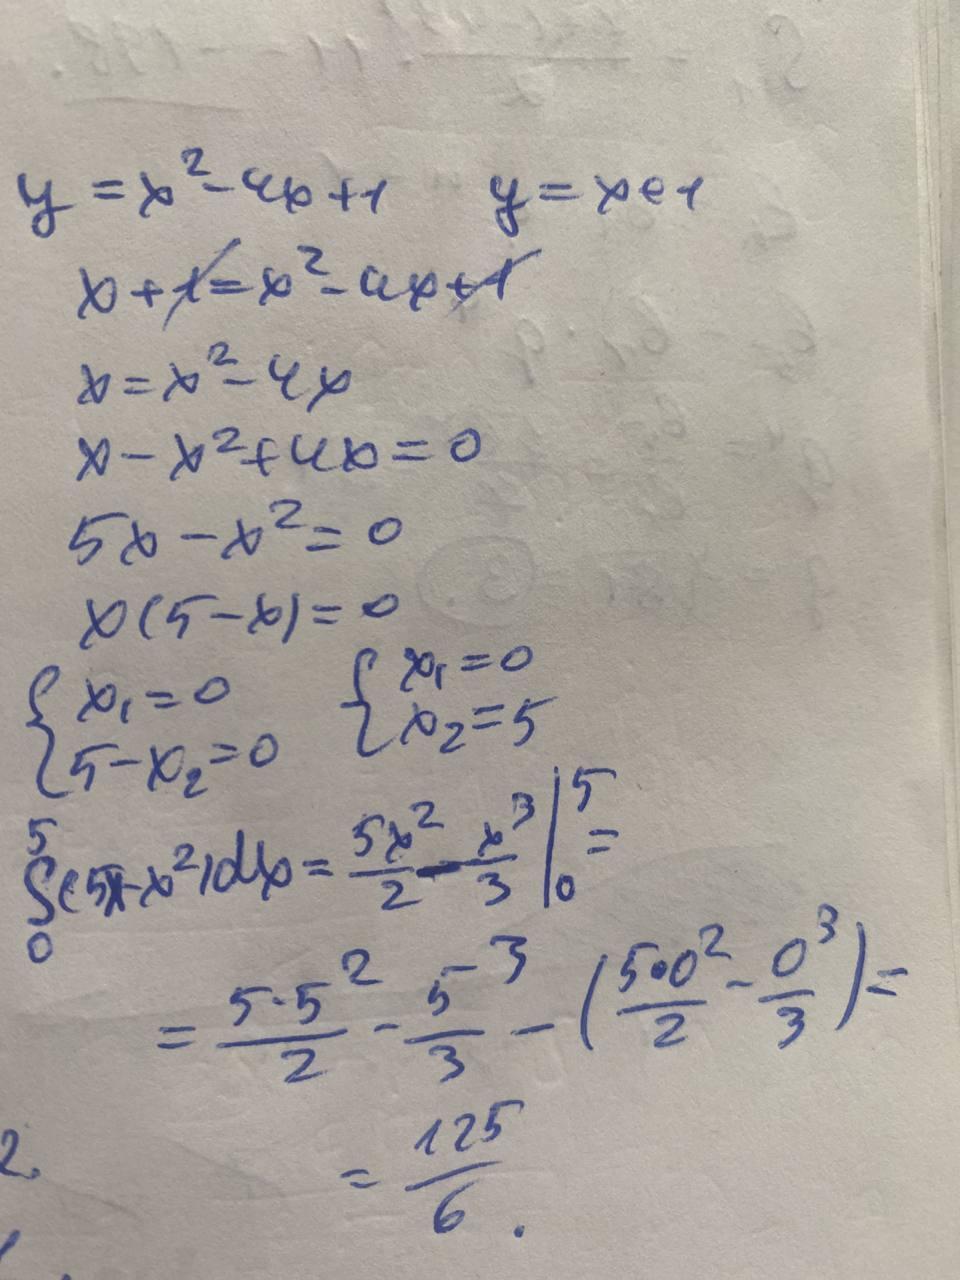 y = x² - 4x + 1   y = x + 1
x + 1 = x² - 4x + 1
x = x² - 4x
x - x² + 4x = 0
5x - x² = 0
x(5 - x) = 0
{ x₁ = 0   { x₁ = 0
5 - x₂ = 0   x₂ = 5
∫₀⁵ (5x - x²)dx = 5x²/2 - x³/3 |₀⁵ =
= 5·5²/2 - 5³/3 - (5·0²/2 - 0³/3) =
2.
= 125/6.